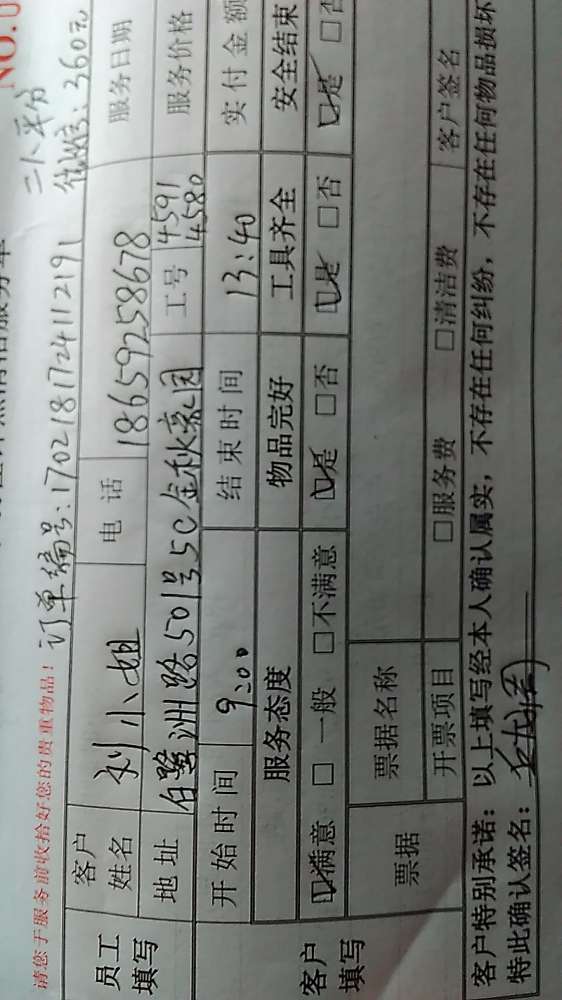 NO.0
请您于服务前收拾好您的贵重物品！
订单编号:1702181724112191
优惠:360元
员工填写
客户姓名 刘小姐 电话 18659258678 服务日期
地址 白鹭洲路501号5C金秋豪园 工号 4591 4580 服务价格
客户填写
开始时间 9:00 结束时间 13:40 实付金额
服务态度 物品完好 工具齐全 安全结束
☑满意 □一般 □不满意 ☑是 □否 ☑是 □否 ☑是 □否
票据 票据名称
开票项目 □服务费 □清洁费 客户签名
客户特别承诺：以上填写经本人确认属实，不存在任何纠纷，不存在任何物品损坏
特此确认签名：